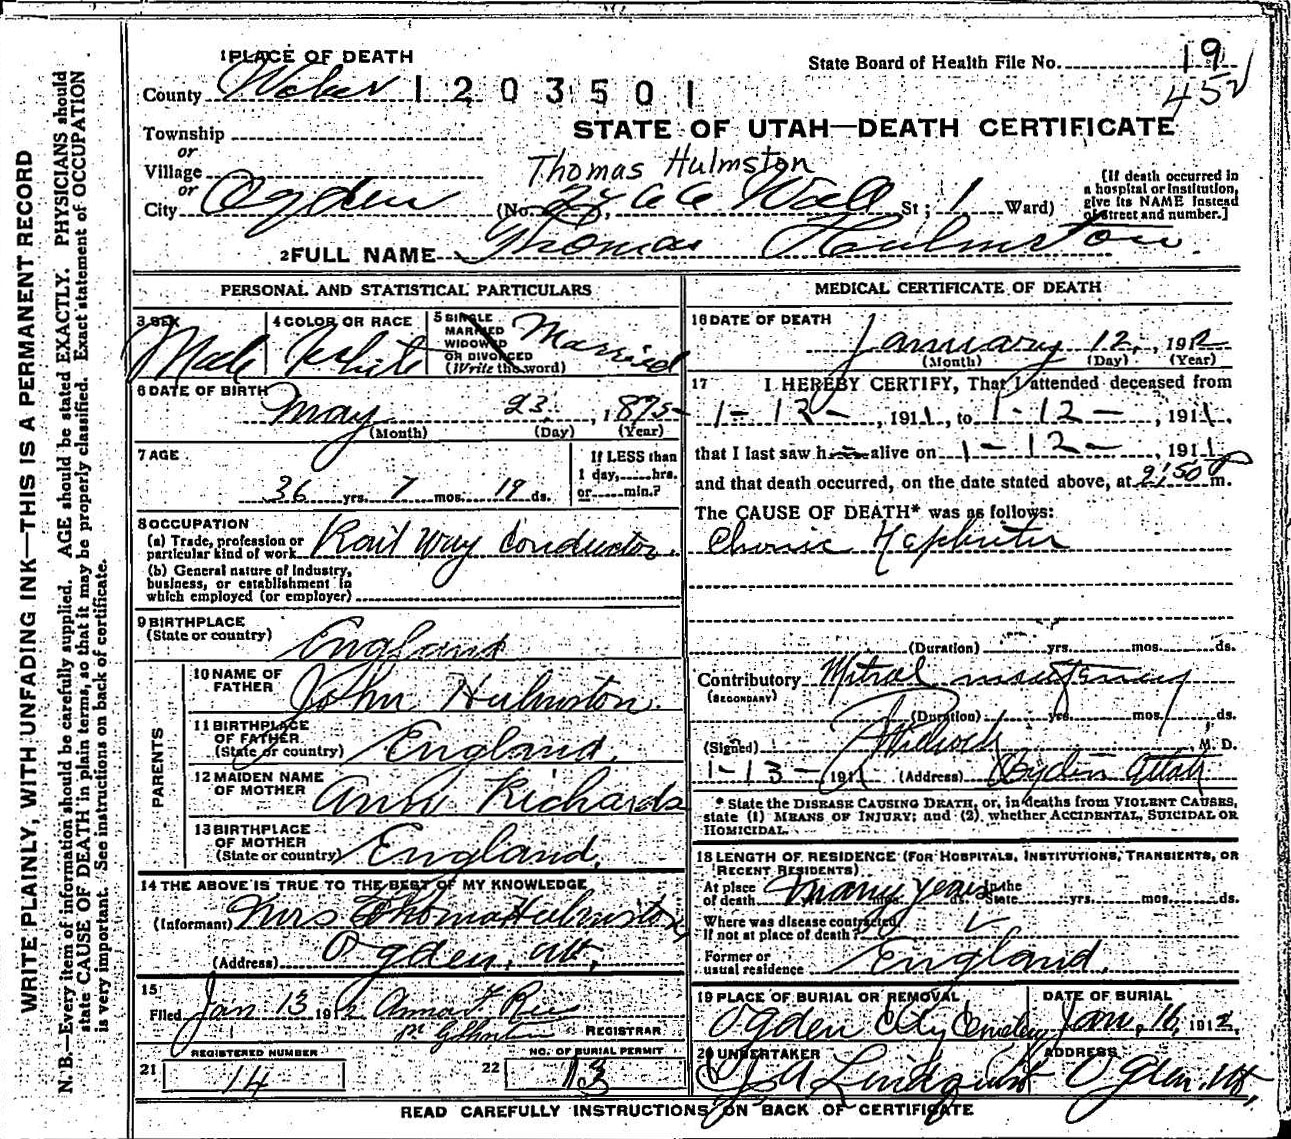 1 PLACE OF DEATH
State Board of Health File No. 19
County Weber 1203501
452
Township
STATE OF UTAH—DEATH CERTIFICATE
or
Village
Thomas Hulmston
or
City Ogden (No. 2466 Wall St; 1 Ward)
[If death occurred in
a hospital or institution,
give its NAME instead
of street and number.]
2 FULL NAME Thomas Houlmston
PERSONAL AND STATISTICAL PARTICULARS
3 SEX Male
4 COLOR OR RACE White
5 SINGLE
MARRIED
WIDOWED
OR DIVORCED
(Write the word) Married
6 DATE OF BIRTH
May 23, 1875
(Month) (Day) (Year)
7 AGE
36 yrs. 7 mos. 19 ds.
If LESS than
1 day, hrs.
or min.?
8 OCCUPATION
(a) Trade, profession or
particular kind of work Rail Way Conductor.
(b) General nature of Industry,
business, or establishment in
which employed (or employer)
9 BIRTHPLACE
(State or country) England
PARENTS
10 NAME OF
FATHER John Hulmston.
11 BIRTHPLACE
OF FATHER
(State or country) England.
12 MAIDEN NAME
OF MOTHER Ann Richards
13 BIRTHPLACE
OF MOTHER
(State or country) England.
14 THE ABOVE IS TRUE TO THE BEST OF MY KNOWLEDGE
(Informant) Mrs Thomas Hulmston
(Address) Ogden, Ut.
15
Filed Jan 13 1912 Anna F. Ree
REGISTRAR
REGISTERED NUMBER
21 14
NO. OF BURIAL PERMIT
22 13
MEDICAL CERTIFICATE OF DEATH
16 DATE OF DEATH
January 12, 1912
(Month) (Day) (Year)
17 I HEREBY CERTIFY, That I attended deceased from
1-12-, 1911, to 1-12-, 1911,
that I last saw h alive on 1-12-, 1911
and that death occurred, on the date stated above, at 9:50 P m.
The CAUSE OF DEATH* was as follows:
Chronic Nephritis
(Duration) yrs. mos. ds.
Contributory Mitral insufficiency
(SECONDARY)
(Duration) yrs. mos. ds.
(Signed) M. D.
1-13-1911 (Address) Ogden Utah
* State the DISEASE CAUSING DEATH, or, in deaths from VIOLENT CAUSES,
state (1) MEANS OF INJURY; and (2) whether ACCIDENTAL, SUICIDAL OR
HOMICIDAL.
18 LENGTH OF RESIDENCE (FOR HOSPITALS, INSTITUTIONS, TRANSIENTS, OR
RECENT RESIDENTS)
At place
of death Many years In the
State yrs. mos. ds.
Where was disease contracted,
If not at place of death?
Former or
usual residence England.
19 PLACE OF BURIAL OR REMOVAL
Ogden City Cemetery
DATE OF BURIAL
Jan. 16, 1912.
20 UNDERTAKER
J. A. Lindquist
ADDRESS
Ogden, Ut.
READ CAREFULLY INSTRUCTIONS ON BACK OF CERTIFICATE
WRITE PLAINLY, WITH UNFADING INK—THIS IS A PERMANENT RECORD
N. B.—Every item of information should be carefully supplied. AGE should be stated EXACTLY. PHYSICIANS should
state CAUSE OF DEATH in plain terms, so that it may be properly classified. Exact statement of OCCUPATION
is very important. See instructions on back of certificate.